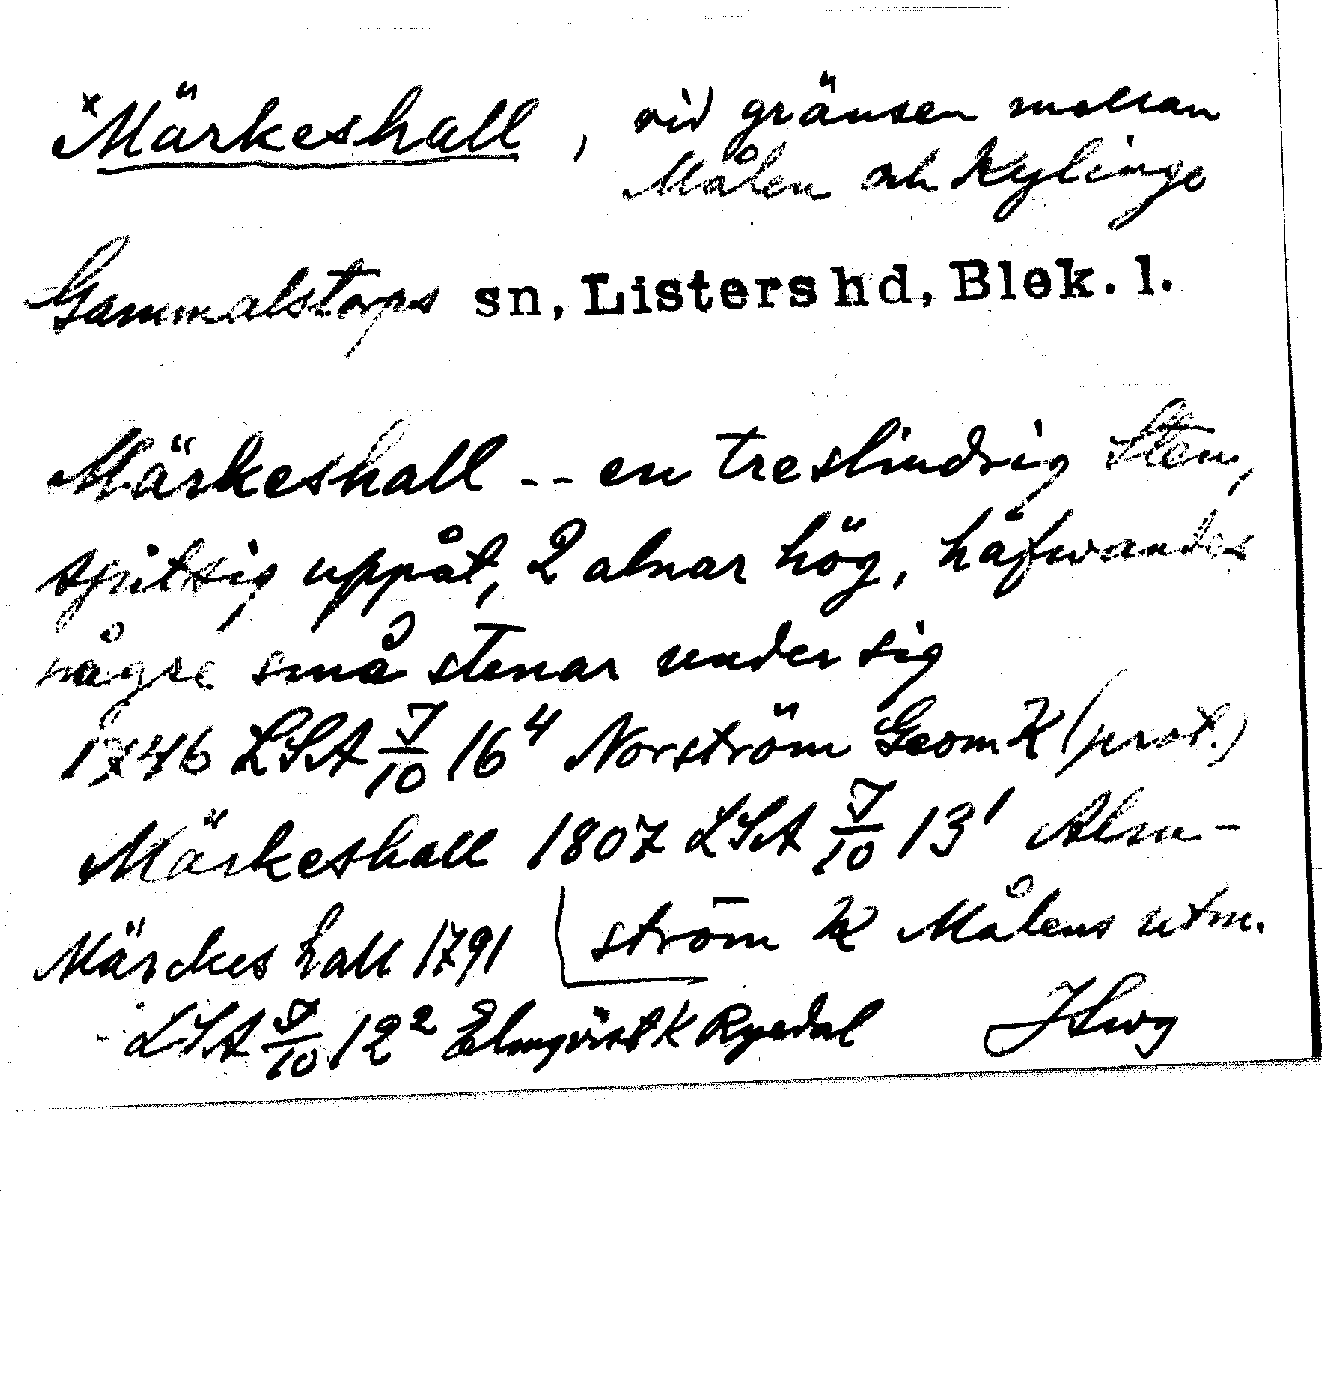 *Märkeshall, vid gränsen mellan
Målen och Kylinge
Gammalstorps sn, Listers hd, Blek. l.
Märkeshall -- en treslindrig Sten,
spitsig uppåt, 2 alnar hög, hafwandes
någre små stenar under sig
1746 LSA 7/10 16⁴ Norström Geom K (prot.)
Märkeshall 1807 LSA 7/10 13¹ Alm-
ström K Målens utm.
Märckes hall 1791
LSA 7/10 12² Elmqvist K Ryedal